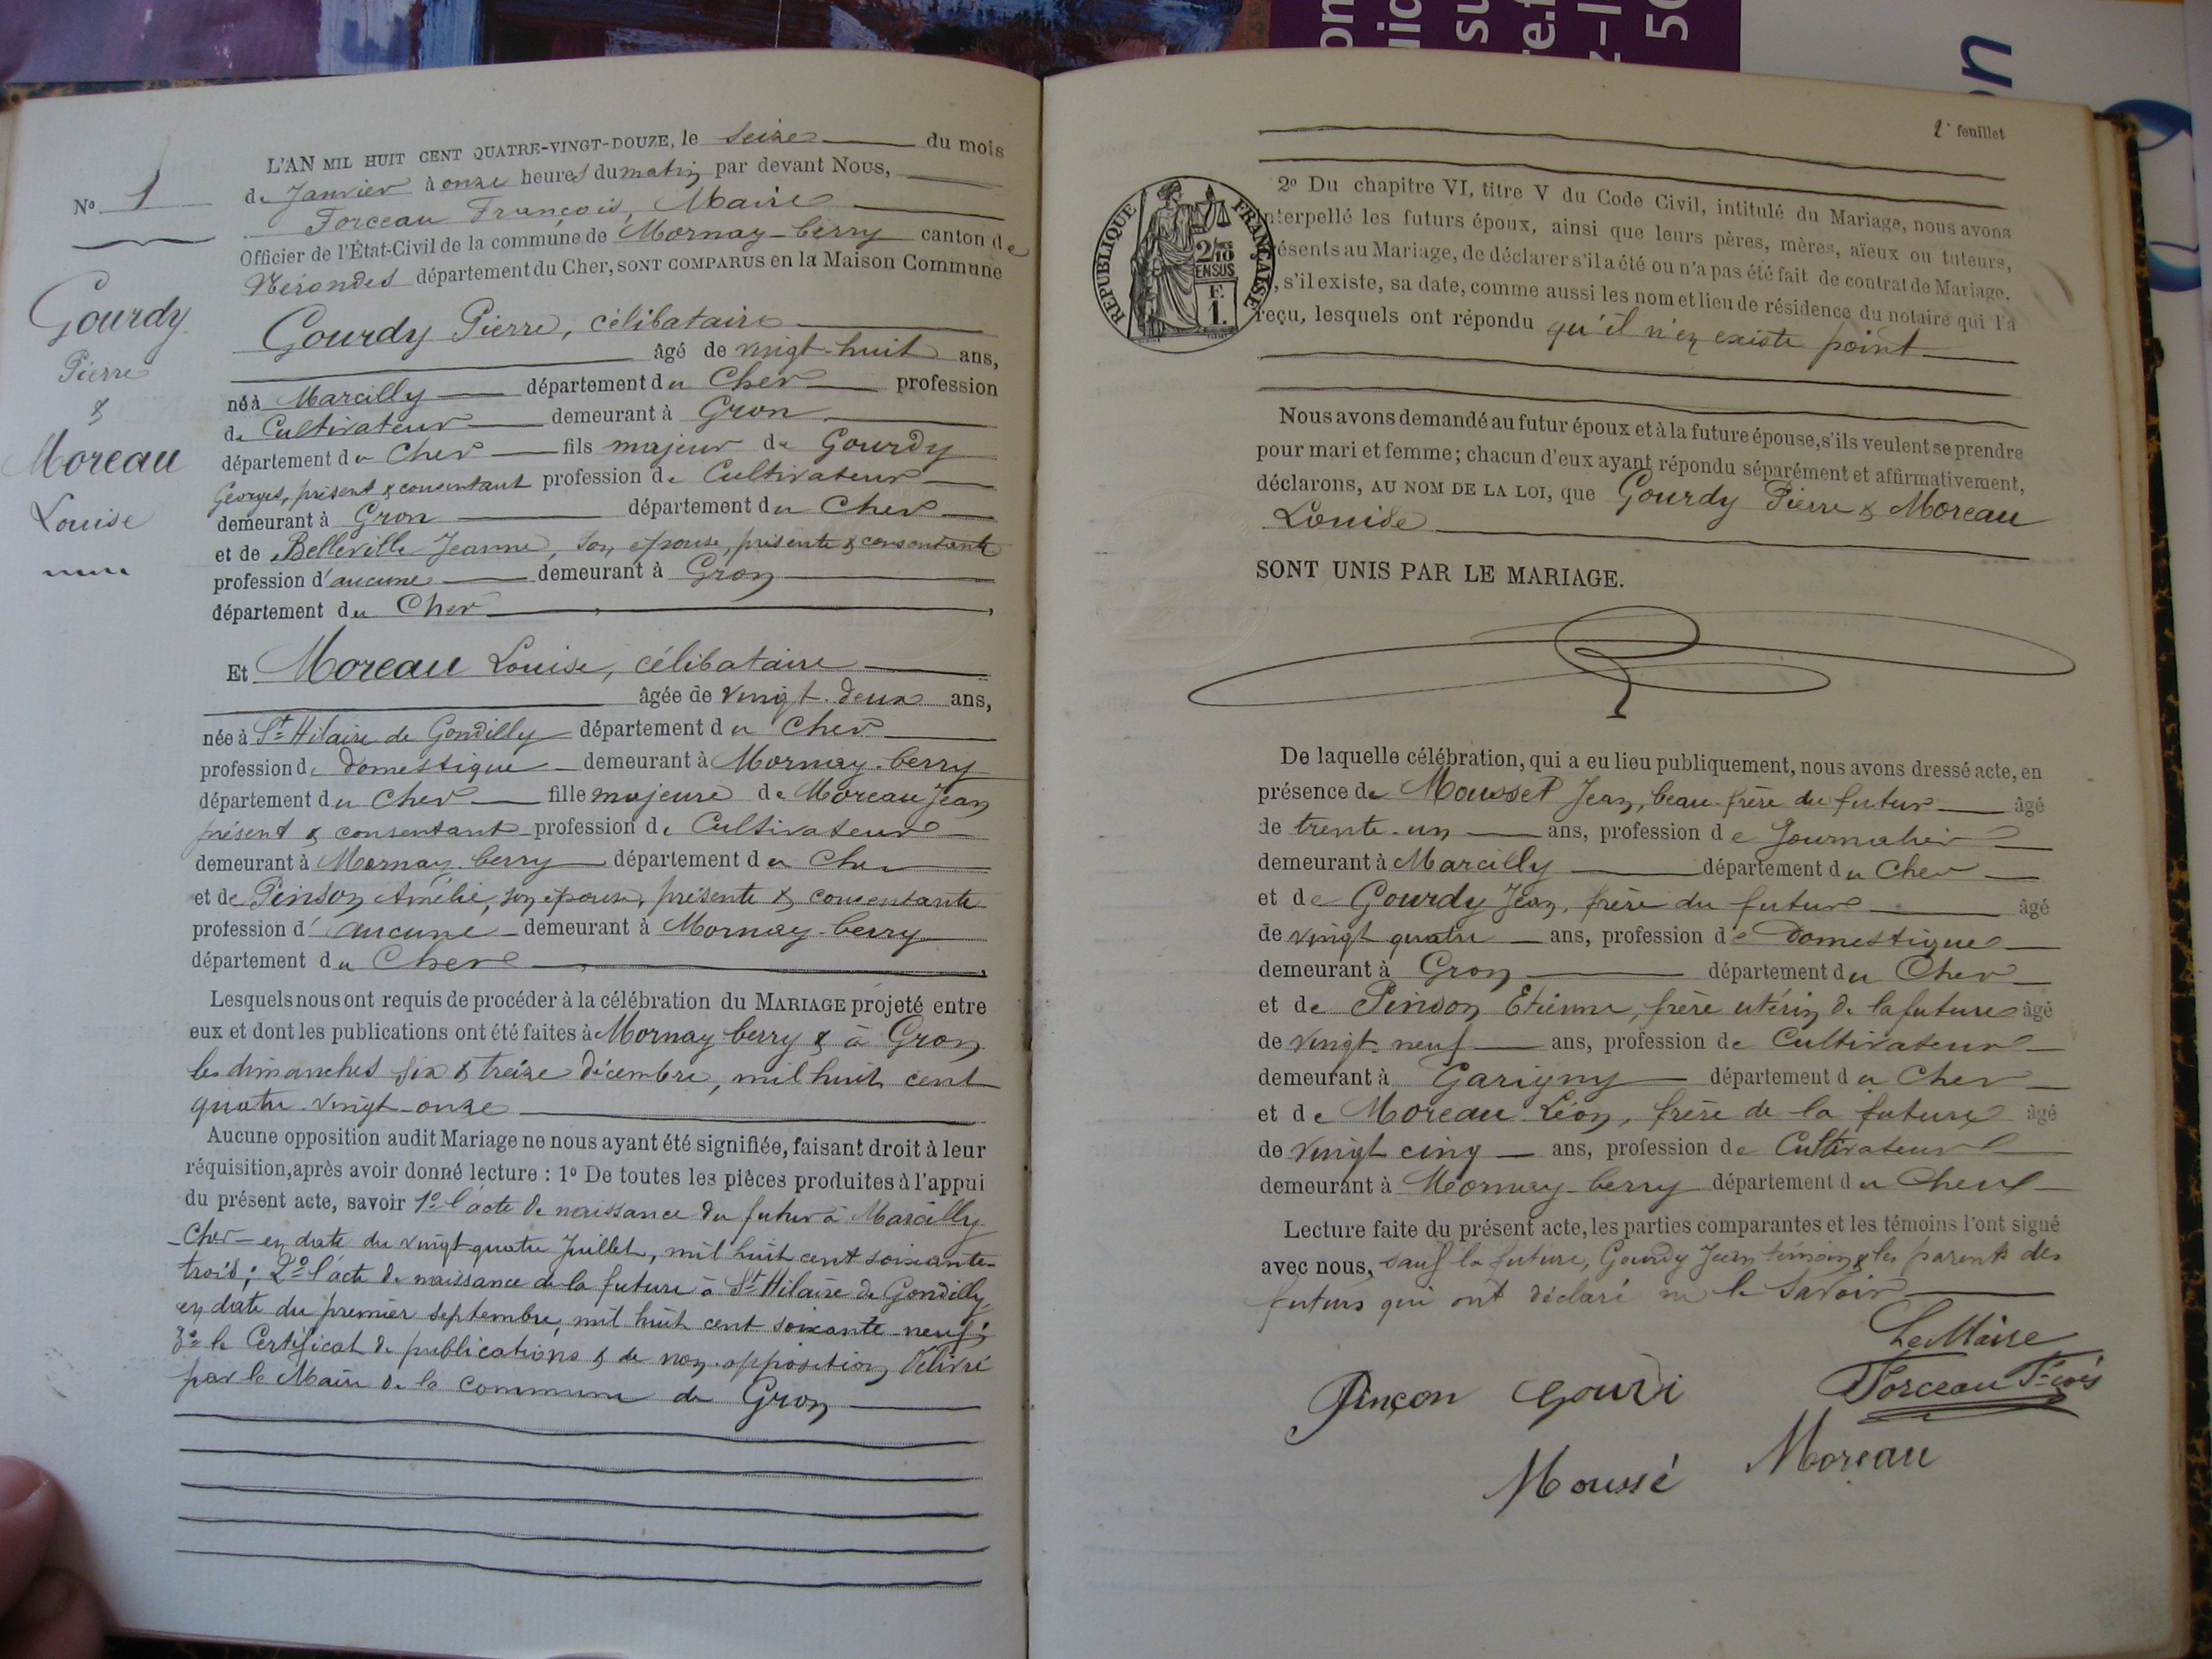 L'AN MIL HUIT CENT QUATRE-VINGT-DOUZE, le seize du mois
de Janvier à onze heures du matin par devant Nous,
Forceau François, Maire
Officier de l'État-Civil de la commune de Mornay-berry canton de
Nérondes département du Cher, SONT COMPARUS en la Maison Commune
N° 1
Gourdy
Pierre
&
Moreau
Louise
Gourdy Pierre, célibataire
âgé de vingt-huit ans,
né à Marcilly département du Cher profession
de Cultivateur demeurant à Gron
département du Cher fils majeur de Gourdy
Georges, présent & consentant profession de Cultivateur
demeurant à Gron département du Cher
et de Belleville Jeanne, son épouse, présente & consentante
profession d'aucune demeurant à Gron
département du Cher,
Et Moreau Louise, célibataire
âgée de vingt-deux ans,
née à St Hilaire de Gondilly département du Cher
profession de domestique demeurant à Mornay-berry
département du Cher fille majeure de Moreau Jean
présent & consentant profession de Cultivateur
demeurant à Mornay-berry département du Cher
et de Pinson Amélie, son épouse, présente & consentante
profession d'aucune demeurant à Mornay-berry
département du Cher,
Lesquels nous ont requis de procéder à la célébration du MARIAGE projeté entre
eux et dont les publications ont été faites à Mornay-berry & à Gron
les dimanches six & treize décembre, mil huit cent
quatre-vingt-onze
Aucune opposition audit Mariage ne nous ayant été signifiée, faisant droit à leur
réquisition, après avoir donné lecture : 1° De toutes les pièces produites à l'appui
du présent acte, savoir 1° l'acte de naissance du futur à Marcilly
-Cher- en date du vingt quatre Juillet, mil huit cent soixante-
trois; 2° l'acte de naissance de la future à St Hilaire de Gondilly,
en date du premier septembre, mil huit cent soixante-neuf;
3° le Certificat de publications & de non-opposition, délivré
par le Maire de la commune de Gron
2e feuillet
REPUBLIQUE FRANÇAISE
2/10
EN SUS
F.
1.
2° Du chapitre VI, titre V du Code Civil, intitulé du Mariage, nous avons
nterpellé les futurs époux, ainsi que leurs pères, mères, aïeux ou tuteurs,
ésents au Mariage, de déclarer s'il a été ou n'a pas été fait de contrat de Mariage,
, s'il existe, sa date, comme aussi les nom et lieu de résidence du notaire qui l'a
reçu, lesquels ont répondu qu'il n'en existe point
Nous avons demandé au futur époux et à la future épouse, s'ils veulent se prendre
pour mari et femme; chacun d'eux ayant répondu séparément et affirmativement,
déclarons, AU NOM DE LA LOI, que Gourdy Pierre & Moreau
Louise
SONT UNIS PAR LE MARIAGE.
De laquelle célébration, qui a eu lieu publiquement, nous avons dressé acte, en
présence de Mousset Jean, beau-frère du futur âgé
de trente-un ans, profession de Journalier
demeurant à Marcilly département du Cher
et de Gourdy Jean, frère du futur âgé
de vingt quatre ans, profession de Domestique
demeurant à Gron département du Cher
et de Pinson Etienne, frère utérin de la future âgé
de vingt-neuf ans, profession de Cultivateur
demeurant à Garigny département du Cher
et de Moreau Léon, frère de la future âgé
de vingt cinq ans, profession de Cultivateur
demeurant à Mornay-berry département du Cher
Lecture faite du présent acte, les parties comparantes et les témoins l'ont signé
avec nous, sauf la future, Gourdy Jean témoin & les parents des
futurs qui ont déclaré ne le savoir
Le Maire
Pinçon Gourdi Forceau Fçois
Moussé Moreau